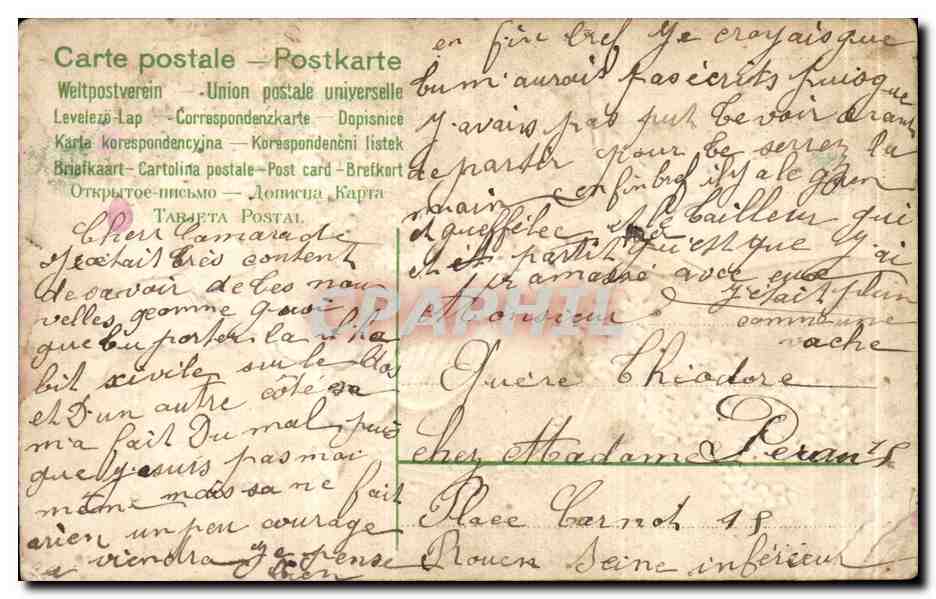 Carte postale — Postkarte
Weltpostverein — Union postale universelle
Levelező-Lap — Correspondenzkarte — Dopisnice
Karta korespondencyjna — Korespondenční listek
Briefkaart — Cartolina postale — Post card — Brefkort
Открытое-письмо — Дописна Карта
Tarjeta Postal
Cherr Camarade
Je etait tres content
de savoir de tes nou
velles
que tu porter la
bit sivile sur le dos
et D'un autre côte sa
m'a fait Du mal puis
que Je suis pas moi
même mais sa ne fait
arien un peu courage
viendra Je pense
bien
en fin bref Je croyais que
tu m'aurait pas écrits puisque
J'avais pas put te voir avant
de partir pour te serrer la
main enfin bref il y a le
et le tailleur qui
et partit qu'est que J'ai
ramassé avec eux
J'était plin
comme une
vache
CPAPHIL
Monsieur
Quére Théodore
chez Madame
Place Carnot 15
Rouen Seine inférieur